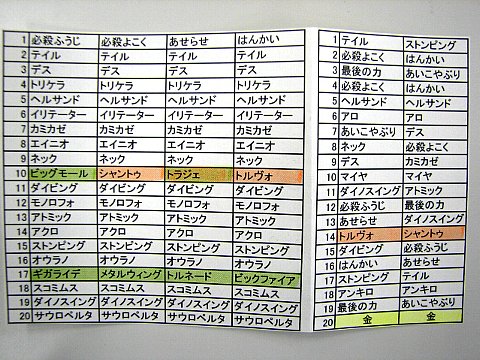 1 必殺ふうじ 必殺よこく あせらせ はんかい
2 テイル テイル テイル テイル
3 デス デス デス デス
4 トリケラ トリケラ トリケラ トリケラ
5 ヘルサンド ヘルサンド ヘルサンド ヘルサンド
6 イリテーター イリテーター イリテーター イリテーター
7 カミカゼ カミカゼ カミカゼ カミカゼ
8 エイニオ エイニオ エイニオ エイニオ
9 ネック ネック ネック ネック
10 ビッグモール シャントゥ トラジェ トルヴォ
11 ダイビング ダイビング ダイビング ダイビング
12 モノロフォ モノロフォ モノロフォ モノロフォ
13 アトミック アトミック アトミック アトミック
14 アクロ アクロ アクロ アクロ
15 ストンピング ストンピング ストンピング ストンピング
16 オウラノ オウラノ オウラノ オウラノ
17 ギガライデ メタルウィング トルネード ビックファイア
18 スコミムス スコミムス スコミムス スコミムス
19 ダイノスイング ダイノスイング ダイノスイング ダイノスイング
20 サウロペルタ サウロペルタ サウロペルタ サウロペルタ
1 テイル ストンピング
2 必殺よこく はんかい
3 最後の力 あいこやぶり
4 必殺よこく はんかい
5 ヘルサンド ヘルサンド
6 アロ アロ
7 あいこやぶり デス
8 ネック 必殺よこく
9 デス カミカゼ
10 マイヤ マイヤ
11 ダイノスイング アトミック
12 必殺ふうじ 最後の力
13 あせらせ ダイノスイング
14 トルヴォ シャントゥ
15 ダイビング 必殺ふうじ
16 はんかい あせらせ
17 ストンピング テイル
18 アンキロ アンキロ
19 最後の力 あいこやぶり
20 金 金